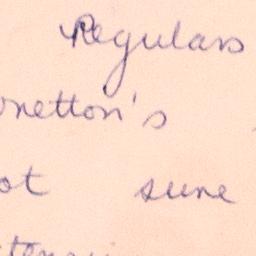 Regulars
onetton's
ot sure